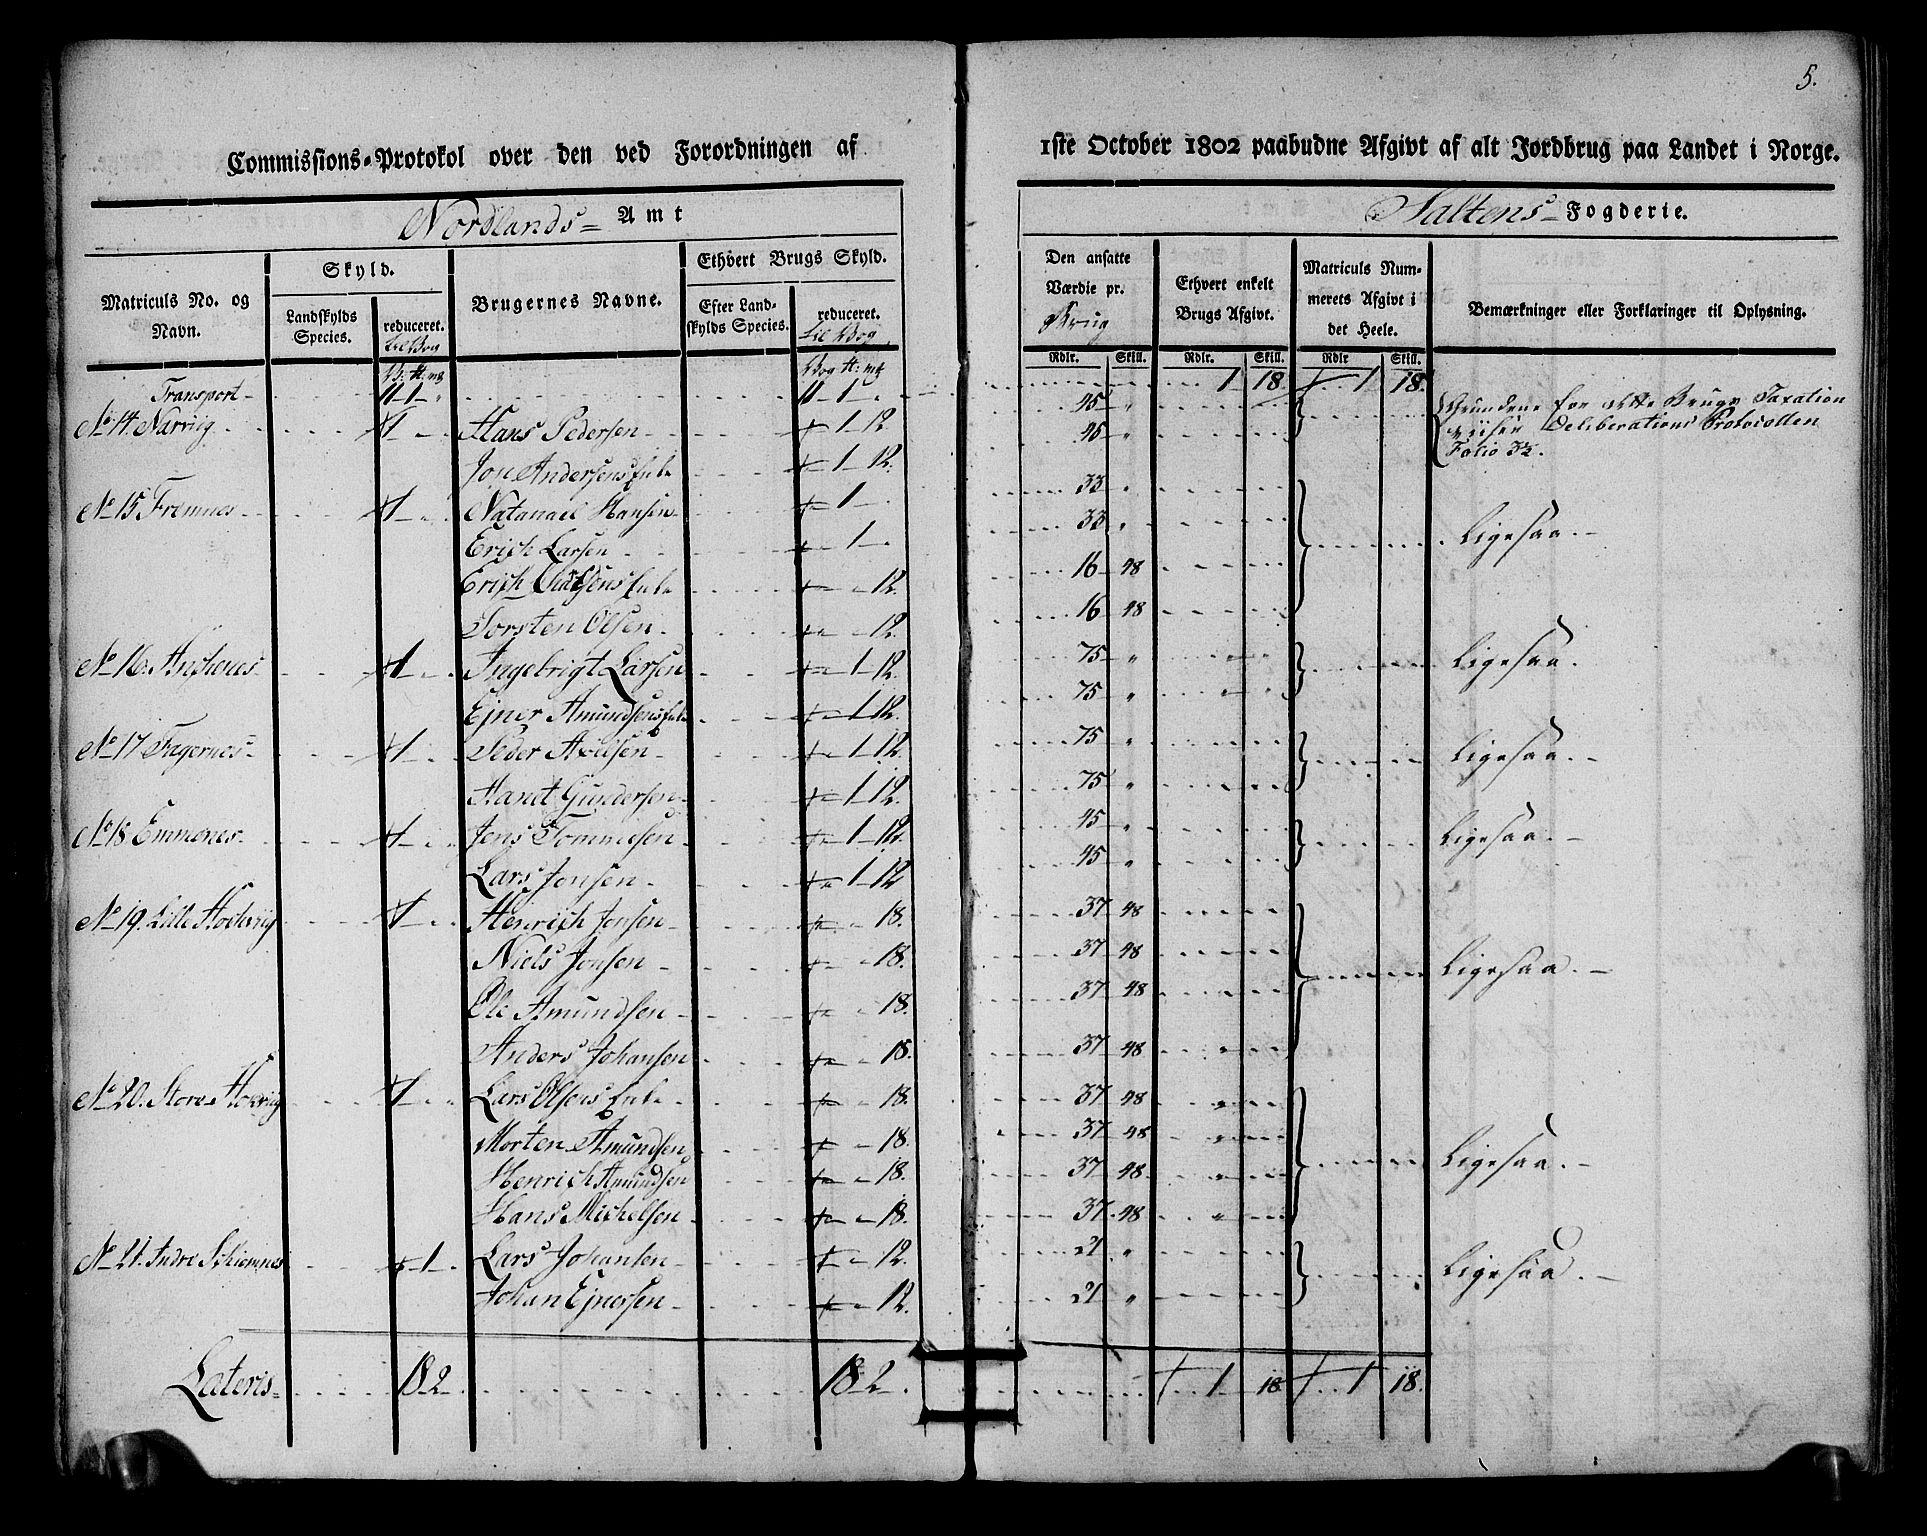 5.
Commissions-Protokol over den ved Forordningen af 1ste October 1802 paabudne Afgivt af alt Jordbrug paa Landet i Norge.
Nordlands= Amt Saltens= Fogderie.
Matriculs No. og Navn. Skyld. Landskylds Species. reduceret. til Vog Brugernes Navne. Ethvert Brugs Skyld. Efter Landskylds Species. reduceret. til Vog Den ansatte Værdie pr. Brug Ethvert enkelt Brugs Afgivt. Matriculs Nummerets Afgivt i det Heele. Bemærkninger eller Forklaringer til Oplysning.
Rdlr. Skill. Rdlr. Skill. Rdlr Skill.
Transport 11 1 " 11 1 " 1 18 1 18.
No 14 Narviig 1 Hans Pedersen 1 12 45 " Grundene for dette Brugs Taxation viiser Deliberations Protocollen Folio
Jon Andersens Enke 1 12. 45 "
No 15 Fremnes 1 Natanael Hansen 1 33 " Ligesaa.
Erich Larsen 1 33 "
Erich Enke 12. 16 48
Torsten Olsen 12. 16 48
No 16. Anchenes 1 Ingebrigt Larsen 1 12. 75 " Ligesaa.
Ejner Amundsens Enke 1 12. 75 "
No 17 Fagernes 1 Peder Axelsen 1 12. 75 " Ligesaa.
Gundersen 1 12. 75 "
No 18 Emmenes 1 Jens Tommesen 1 12. 45 " Ligesaa.
Lars Jonsen 1 12 45 "
No 19. Lille 1 Henrich Jonsen 18. 37 48 Ligesaa.
Niels Jonsen 18. 37 48
Ole Amundsen 18. 37 48
Anders Johansen 18. 37 48
No 20. Store 1 Lars Olsens Enke 18. 37 48 Ligesaa.
Morten Amundsen 18. 37 48
Henrich Amundsen 18. 37 48
Hans Michelsen 18. 37 48
No 21. Indre Schiomnes 1 Lars Johansen 12. 21 " Ligesaa.
Johan Ejnersen 12. 21 "
Lateris 18 2 18 2 1 18 1 18.